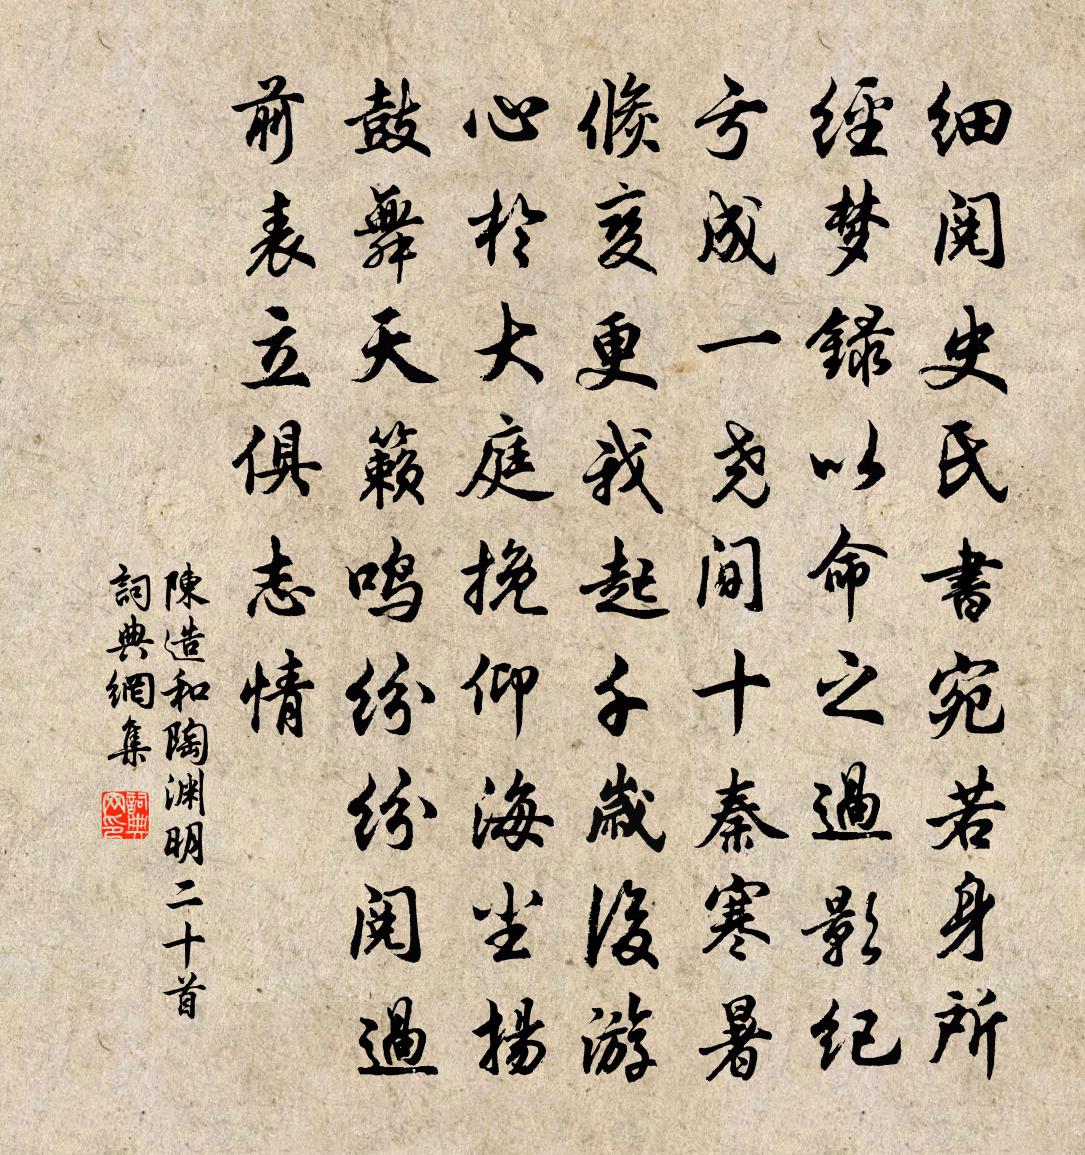 细阅史氏書宛若身所
經梦録以命之過影纪
亏成一尧间十秦寒暑
倏变更我起千歲後游
心於大庭挽仰海尘揚
鼓舞天籁鸣纷纷阅過
前表立俱志情
陳造和陶渊明二十首
詞典網集
詞典网印